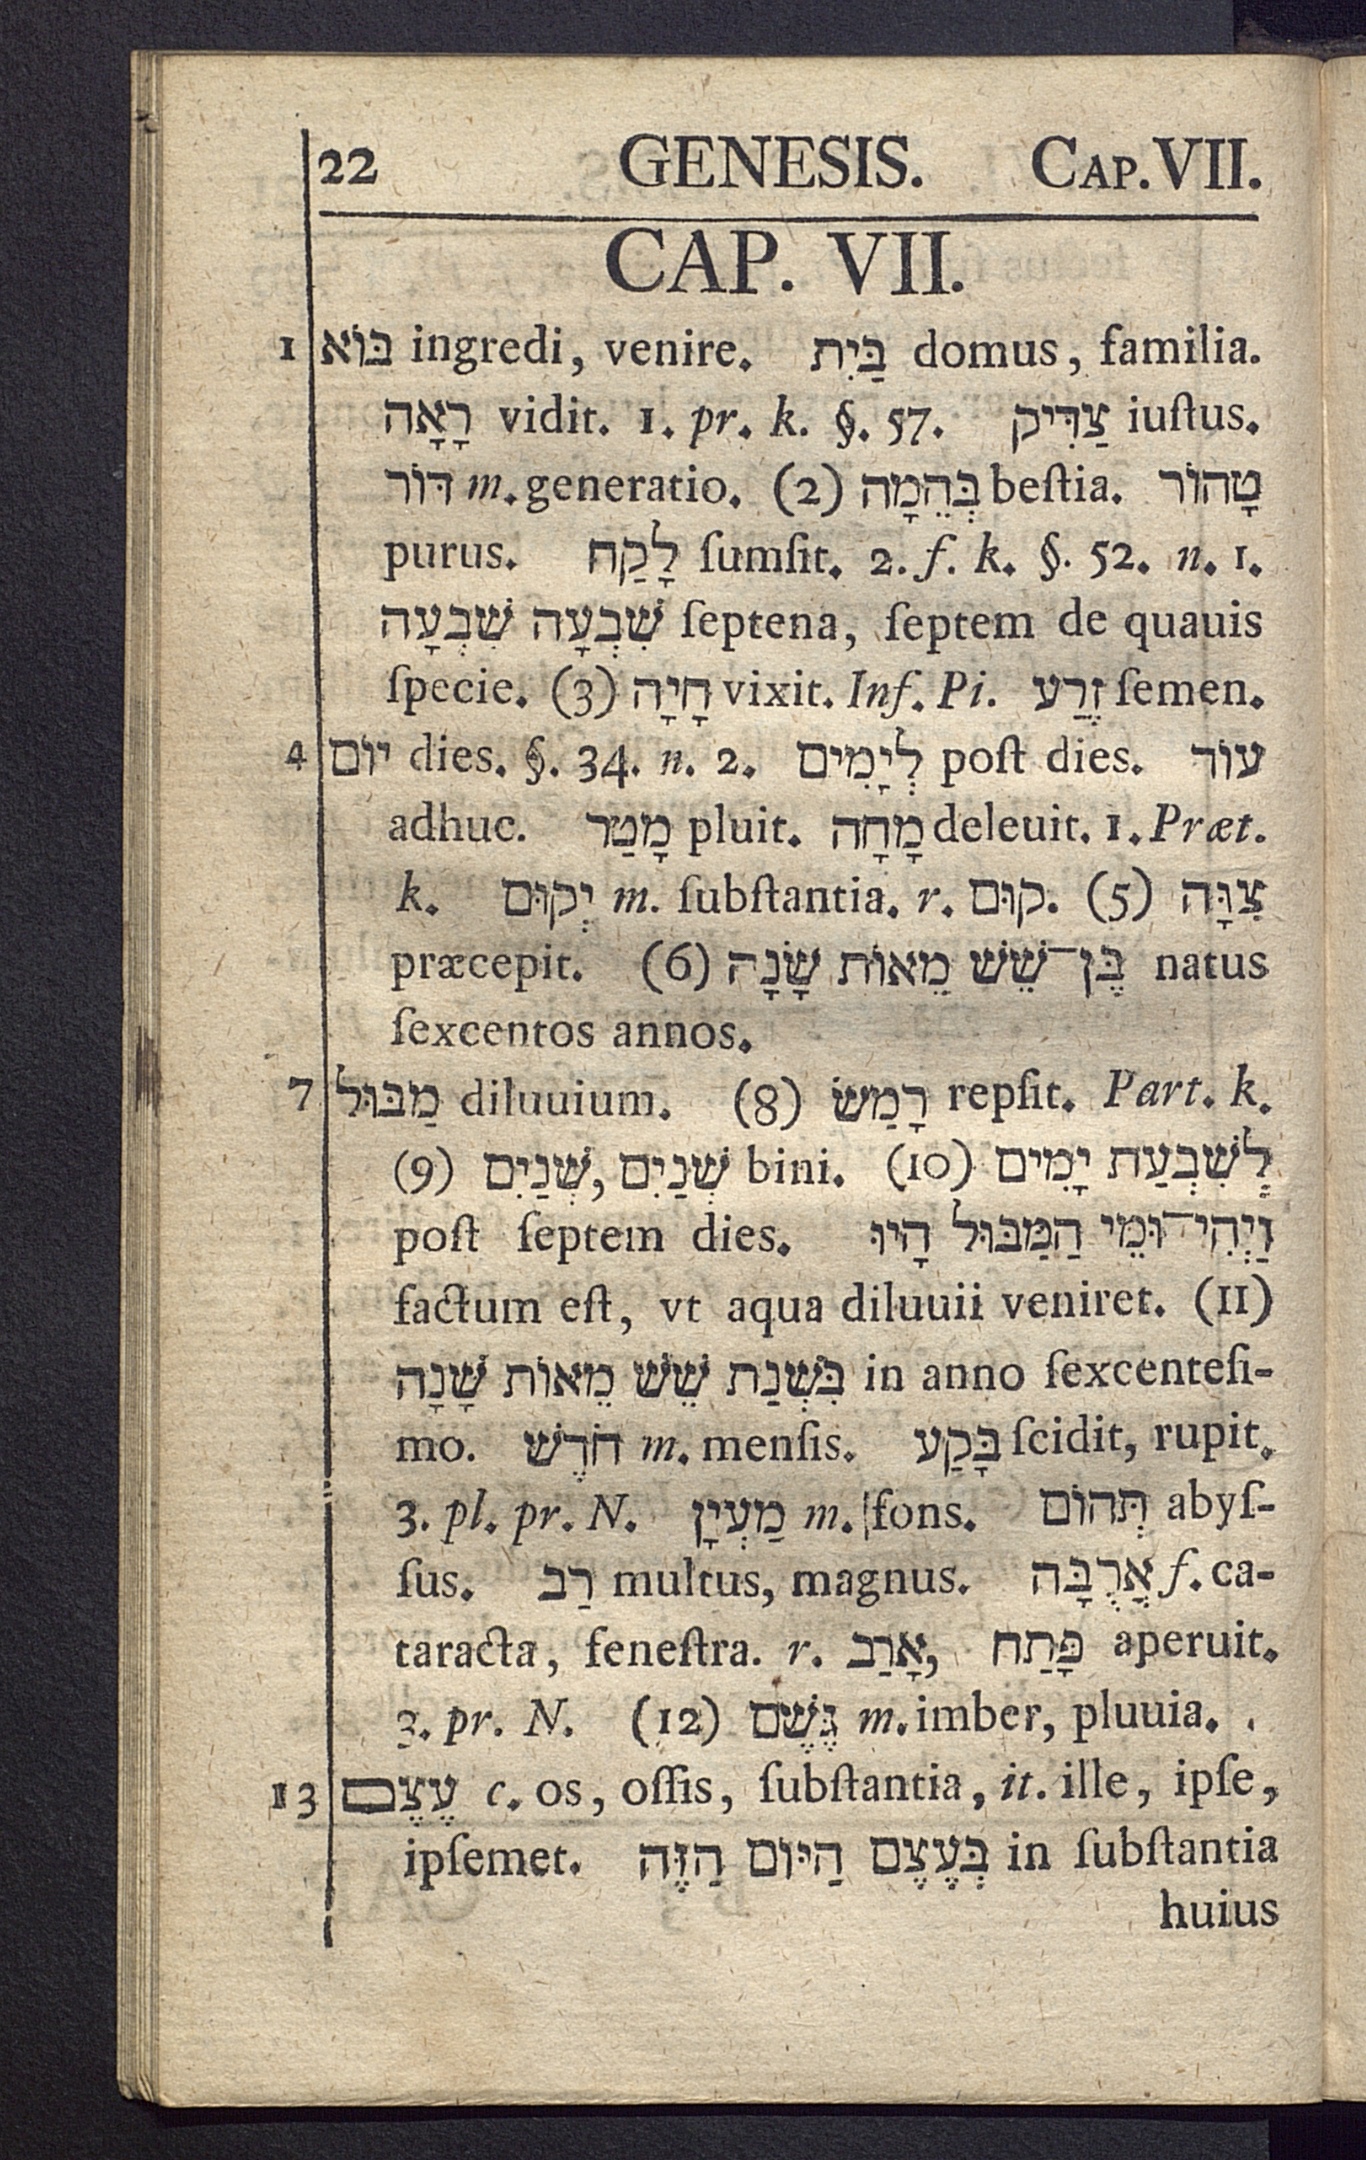 22 GENESIS. CAP. VII.
CAP. VII.
1 בּוֹא ingredi, venire. בַּיִת domus, familia.
רָאָה vidit. 1. pr. k. §. 57. צַדִּיק iuſtus.
דּוֹר m. generatio. (2) בְּהֵמָה beſtia. טָהוֹר
purus. לָקַח ſumſit. 2. f. k. §. 52. n. 1.
שִׁבְעָה שִׁבְעָה ſeptena, ſeptem de quauis
ſpecie. (3) חָיָה vixit. Inf. Pi. זֶרַע ſemen.
4 יוֹם dies. §. 34. n. 2. לְיָמִים poſt dies. עוֹד
adhuc. מָטַר pluit. מָחָה deleuit. 1. Præt.
k. יְקוּם m. ſubſtantia. r. קוּם. (5) צִוָּה
præcepit. (6) בֶּן־שֵׁשׁ מֵאוֹת שָׁנָה natus
ſexcentos annos.
7 מַבּוּל diluuium. (8) רָמַשׂ repſit. Part. k.
(9) שְׁנַיִם, שְׁנַיִם bini. (10) לְשִׁבְעַת יָמִים
poſt ſeptem dies. וַיְהִי־וּמֵי הַמַּבּוּל הָיוּ
factum eſt, vt aqua diluuii veniret. (11)
בִּשְׁנַת שֵׁשׁ מֵאוֹת שָׁנָה in anno ſexcenteſi-
mo. חֹדֶשׁ m. menſis. בָּקַע ſcidit, rupit.
3. pl. pr. N. מַעְיָן m. fons. תְּהוֹם abyſ-
ſus. רַב multus, magnus. אֲרֻבָּה f. ca-
taracta, feneſtra. r. אָרַב, פָּתַח aperuit.
3. pr. N. (12) גֶּשֶׁם m. imber, pluuia.
13 עֶצֶם c. os, oſſis, ſubſtantia, it. ille, ipſe,
ipſemet. בְּעֶצֶם הַיּוֹם הַזֶּה in ſubſtantia
huius